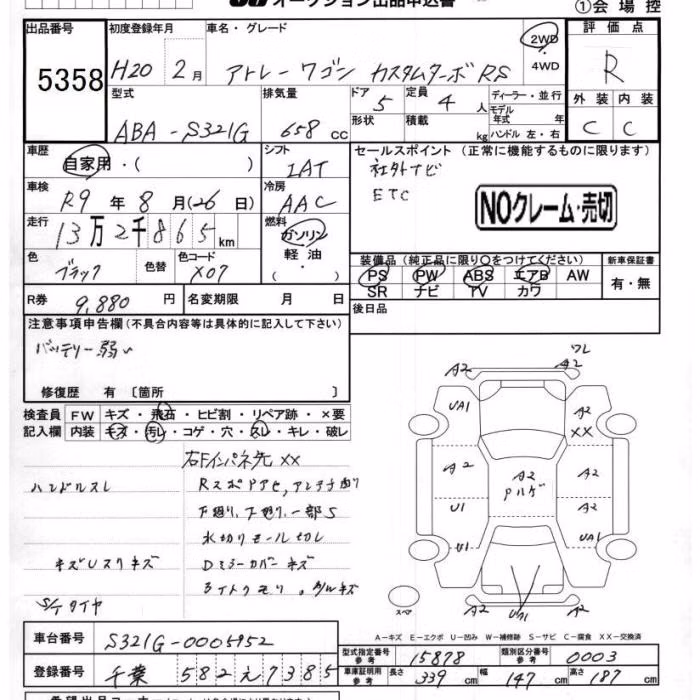 オークション出品申込書
①会場控
出品番号
5358
初度登録年月
H20 2月
車名・グレード
アトレーワゴン カスタムターボRS
2WD
・
4WD
評価点
R
型式
ABA-S321G
排気量
658cc
ドア
5
定員
4人
形状
積載
kg
ディーラー・並行
モデル
年式 年
ハンドル 左・右
外装 内装
C C
車歴
自家用・( )
シフト
IAT
車検
R9年8月(26日)
冷房
AAC
走行
13万2千865km
燃料
ガソリン
・
軽油
・
( )
色
ブラック
色替
色コード
X07
R券
9,880円
名変期限 月 日
セールスポイント(正常に機能するものに限ります)
社外ナビ
ETC
NOクレーム・売切
装備品(純正品に限り○をつけてください)
PS PW ABS エアB AW
SR ナビ TV カワ
新車保証書
有・無
後日品
注意事項申告欄(不具合内容等は具体的に記入して下さい)
バッテリー弱い
修復歴 有 〔箇所 〕
検査員 FW キズ・飛石・ヒビ割・リペア跡・×要
記入欄 内装 キズ・汚レ・コゲ・穴・スレ・キレ・破レ
右Fインパネ先XX
ハンドルスレ
水切りモール切レ
キズUスリキズ
Dミラーカバーキズ
ライトクモリ。グルキズ
S/Tタイヤ
A2 A2 ワレ
UA1 A2
XX
A2 A2 A2
Pハゲ
U1 A2
U1 UA1
スペア A2 A2
A-キズ E-エクボ U-凹み W-補修跡 S-サビ C-腐食 XX-交換済
車台番号
S321G-0005952
登録番号
千葉 582 え 7385
型式指定番号
参考
15878
類別区分番号
参考
0003
車車証明用
参考
長さ 339cm 幅 147cm 高さ 187cm